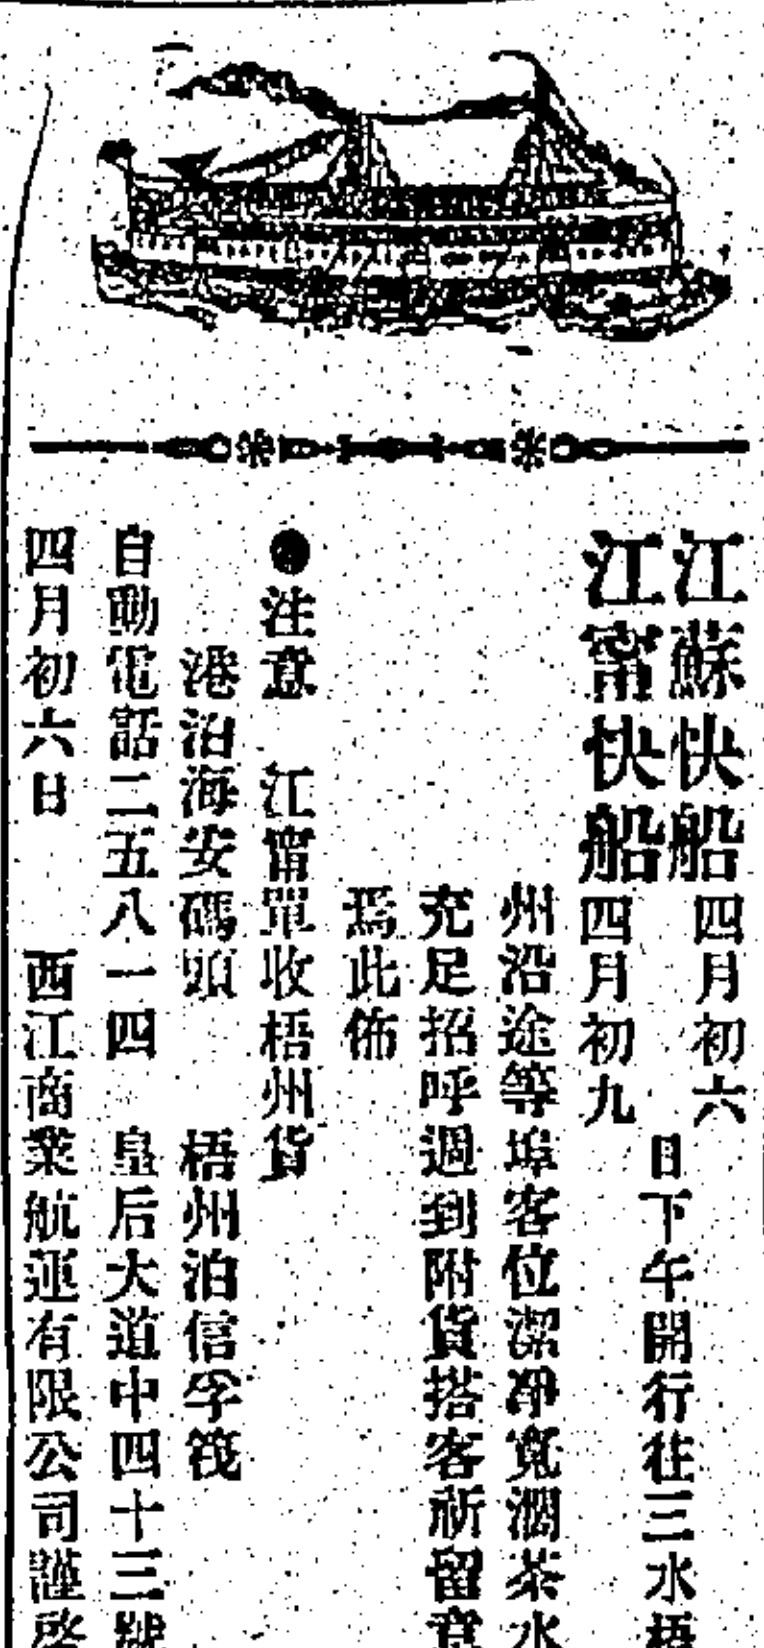 江蘇快船四月初六
江甯快船四月初九
日下午開行往三水梧
州沿途等埠客位潔凈寬濶茶水
充足招呼週到附貨搭客祈留意
焉此佈
●注意　江甯單收梧州貨
港泊海安碼頭　梧州泊信孚筏
自動電話二五八一四　皇后大道中四十三號
四月初六日　西江商業航運有限公司謹啓